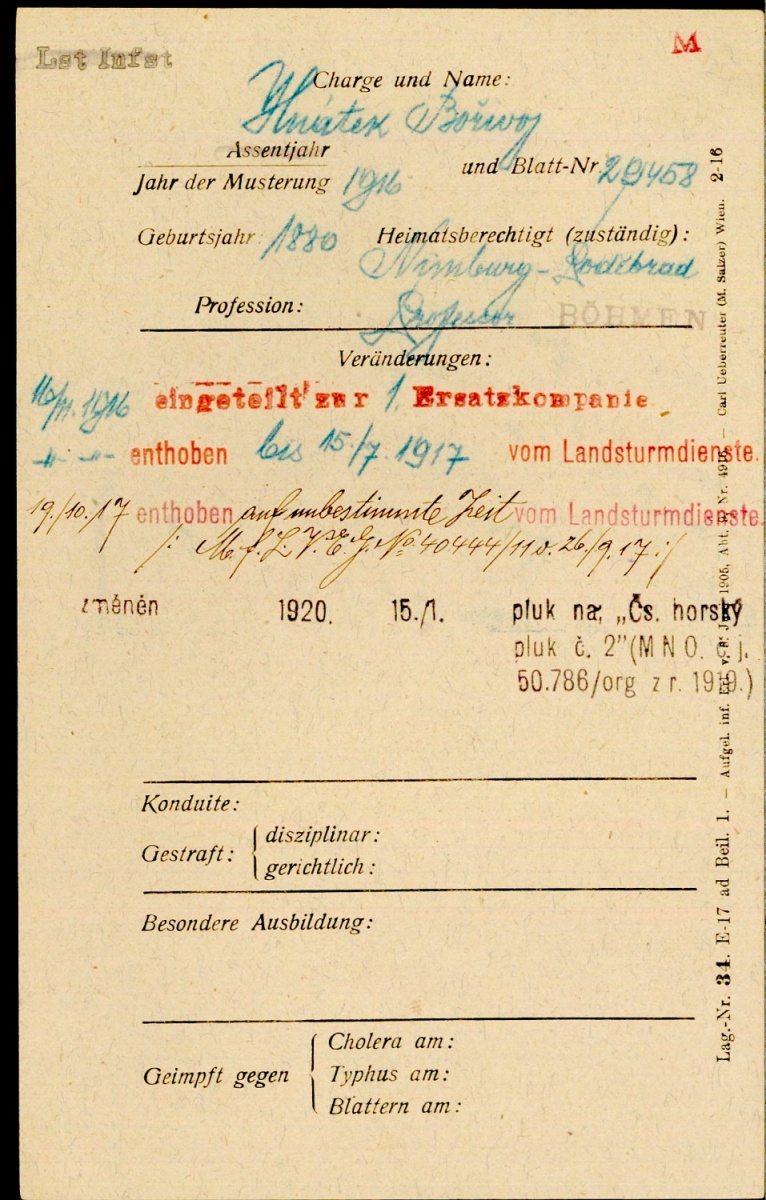 Lst Infst
M
Charge und Name:
Hnátek Bořivoj
Assentjahr
Jahr der Musterung 1916 und Blatt-Nr. 29458
Geburtsjahr 1880 Heimatsberechtigt (zuständig):
Nimburg-Poděbrad
Profession: Professor BÖHMEN
Veränderungen:
1916 eingeteilt zur 1. Ersatzkompanie
-"- -"- enthoben bis 15./7. 1917 vom Landsturmdienste.
19./10.17 enthoben auf unbestimmte Zeit vom Landsturmdienste.
/: M.f.L.V.E.G.No 40444/11 v. 26./9.17 :/
změněn 1920. 15./1. pluk na: „Čs. horský
pluk č. 2”(M N O. č. j.
50.786/org z r. 1919.)
Konduite:
Gestraft: disziplinar:
gerichtlich:
Besondere Ausbildung:
Geimpft gegen Cholera am:
Typhus am:
Blattern am:
Lag.-Nr. 34. E-17 ad Beil. 1. — Aufgel. inf. 1905, Abt. Nr. — Carl Ueberreuter (M. Salzer) Wien. 2-16